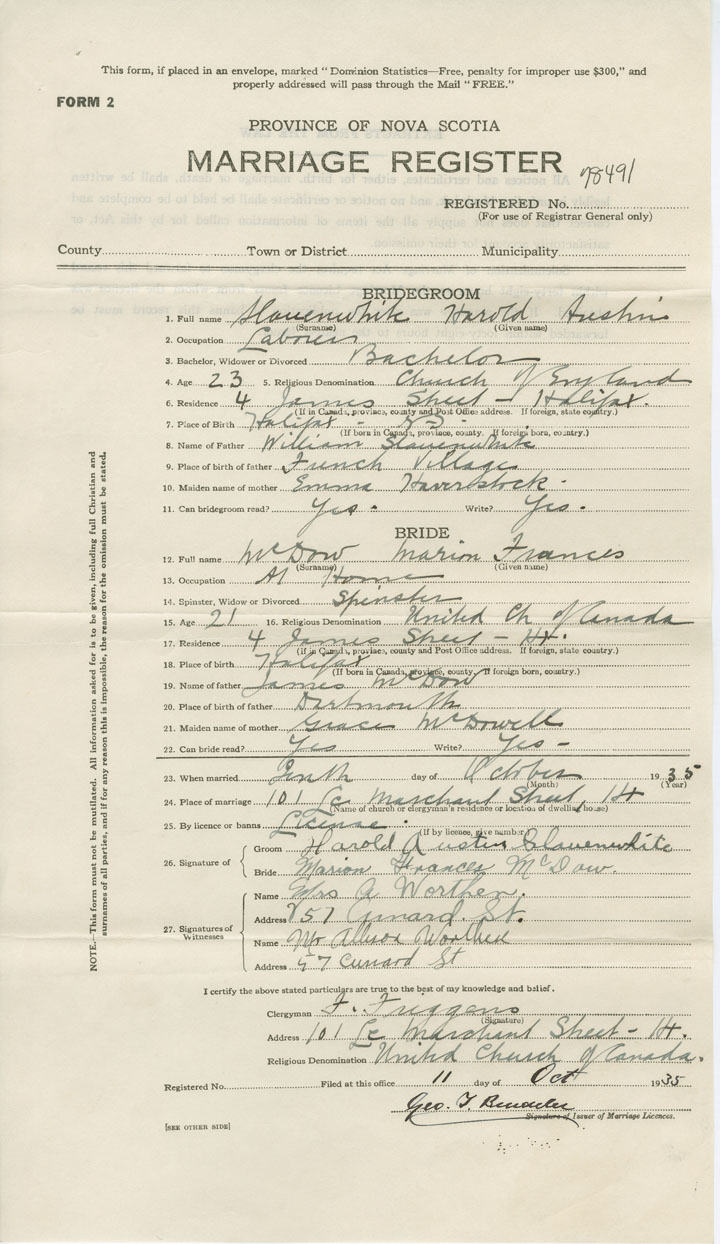 This form, if placed in an envelope, marked "Dominion Statistics—Free, penalty for improper use $300," and
properly addressed will pass through the Mail "FREE."
FORM 2
PROVINCE OF NOVA SCOTIA
MARRIAGE REGISTER 78491
REGISTERED No.
(For use of Registrar General only)
County Town or District Municipality
BRIDEGROOM
1. Full name Slauenwhite Harold Austin
(Surname) (Given name)
2. Occupation Laborer
3. Bachelor, Widower or Divorced Bachelor
4. Age 23 5. Religious Denomination Church of England
6. Residence 4 James Street - Halifax.
(If in Canada, province, county and Post Office address. If foreign, state country.)
7. Place of Birth Halifax - N S -
(If born in Canada, province, county. If foreign born, country.)
8. Name of Father William Slauenwhite
9. Place of birth of father French Village
10. Maiden name of mother Emma Haverstock -
11. Can bridegroom read? Yes - Write? Yes -
BRIDE
12. Full name McDow Marion Frances
(Surname) (Given name)
13. Occupation At Home
14. Spinster, Widow or Divorced Spinster
15. Age 21 16. Religious Denomination United Ch of Canada
17. Residence 4 James Street - Hx.
(If in Canada, province, county and Post Office address. If foreign, state country.)
18. Place of birth Halifax
(If born in Canada, province, county. If foreign born, country.)
19. Name of father James McDow
20. Place of birth of father Dartmouth
21. Maiden name of mother Grace McDowell
22. Can bride read? Yes Write? Yes -
23. When married Tenth day of October 1935
(Month) (Year)
24. Place of marriage 101 Le Marchant Street, Hx
(Name of church or clergyman's residence or location of dwelling house)
25. By licence or banns License.
(If by licence, give number)
26. Signature of
Groom Harold Austin Slauenwhite
Bride Marion Frances McDow.
27. Signatures of Witnesses
Name Mrs A Worthen.
Address 57 Cunard St.
Name Mr Allison
Address 57 Cunard St
I certify the above stated particulars are true to the best of my knowledge and belief.
Clergyman F. Friggens
(Signature)
Address 101 Le Marchant Street - Hx.
Religious Denomination United Church of Canada.
Registered No. Filed at this office 11 day of Oct 1935
Geo. T.
Signature of Issuer of Marriage Licences.
[SEE OTHER SIDE]
NOTE.—This form must not be mutilated. All information asked for is to be given, including full Christian and
surnames of all parties, and if for any reason this is impossible, the reason for the omission must be stated.